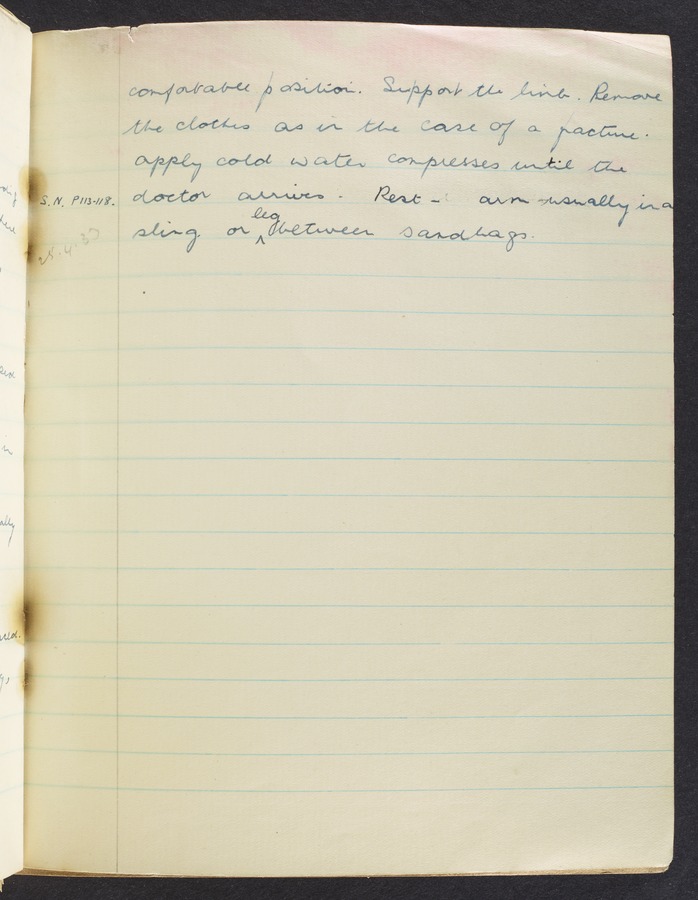 comfortable position. Support the limb. Remove
the clothes as in the case of a fracture.
apply cold water compresses until the
S.N. P113-118. doctor arrives. Rest - arm usually in a
sling or leg between sandbags.